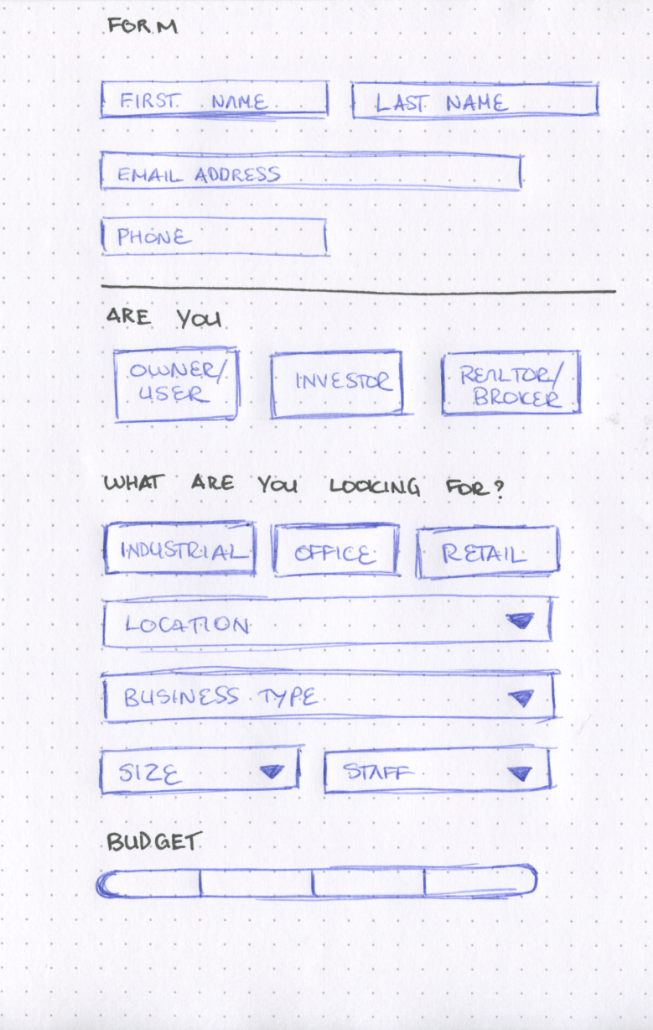 FORM
FIRST NAME
LAST NAME
EMAIL ADDRESS
PHONE
ARE YOU
OWNER/
USER
INVESTOR
REALTOR/
BROKER
WHAT ARE YOU LOOKING FOR?
INDUSTRIAL
OFFICE
RETAIL
LOCATION
BUSINESS TYPE
SIZE
STAFF
BUDGET